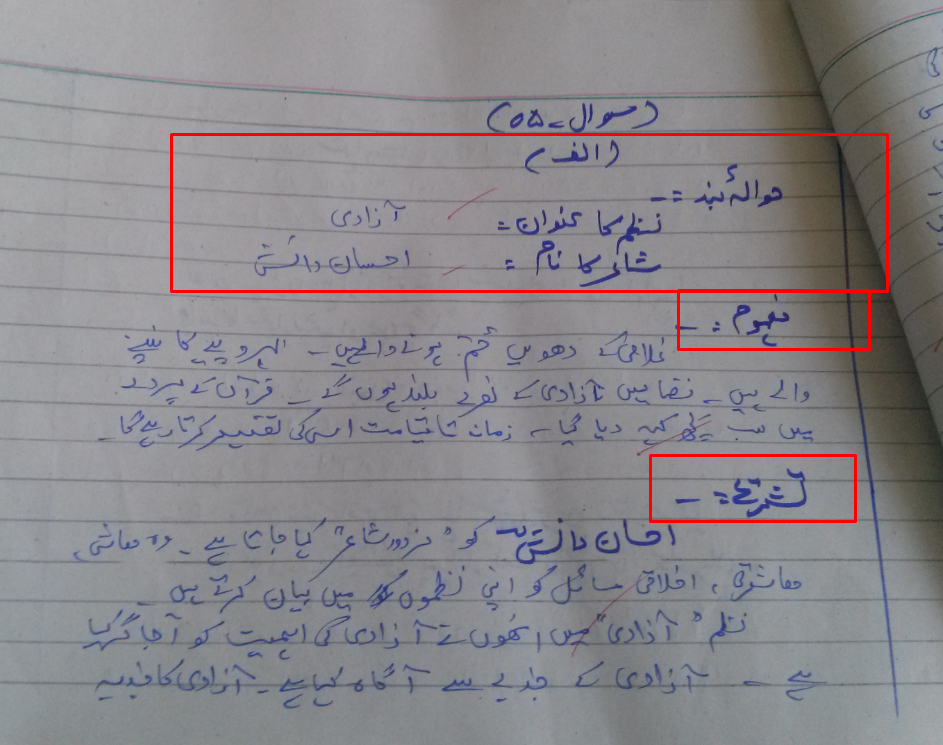 (سوال۔ ۵۵)
(الف)
حوالۂ بند :۔
نظم کا عنوان: آزادی
شاعر کا نام: احسان دانش
مفہوم :۔
غلامی کے دھویں ختم ہونے والے ہیں۔ لہرو کانپنے
والے ہیں۔ فضا میں آزادی کے نعرے بلند ہوں گے۔ قرآن کے پردے
میں سب کچھ کہہ دیا گیا۔ زمانہ تا قیامت اس کی تفسیر کرتا رہے گا۔
تشریح :۔
احسان دانش کو "مزدور شاعر" کہا جاتا ہے۔ وہ معاشی،
معاشرتی، اخلاقی مسائل کو اپنی نظموں میں بیان کرتے ہیں۔
نظم "آزادی" میں انھوں نے آزادی کی اہمیت کو اجاگر کیا
ہے۔ آزادی کے جذبے سے آگاہ کیا ہے۔ آزادی کا جذبہ